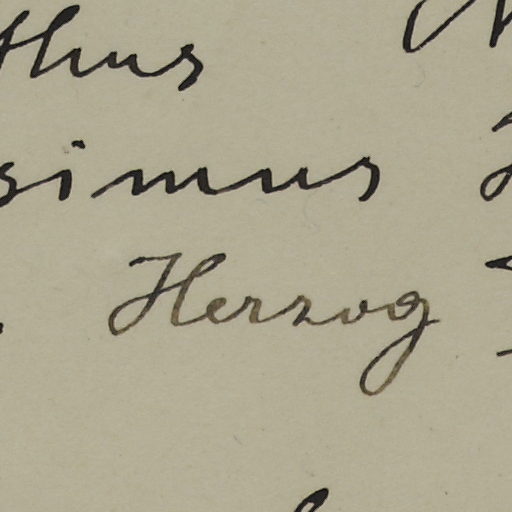 thus
simus
Herzog